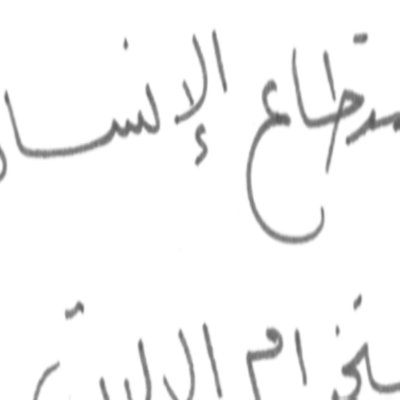 ستطاع الإنسان
ستخدام الالات